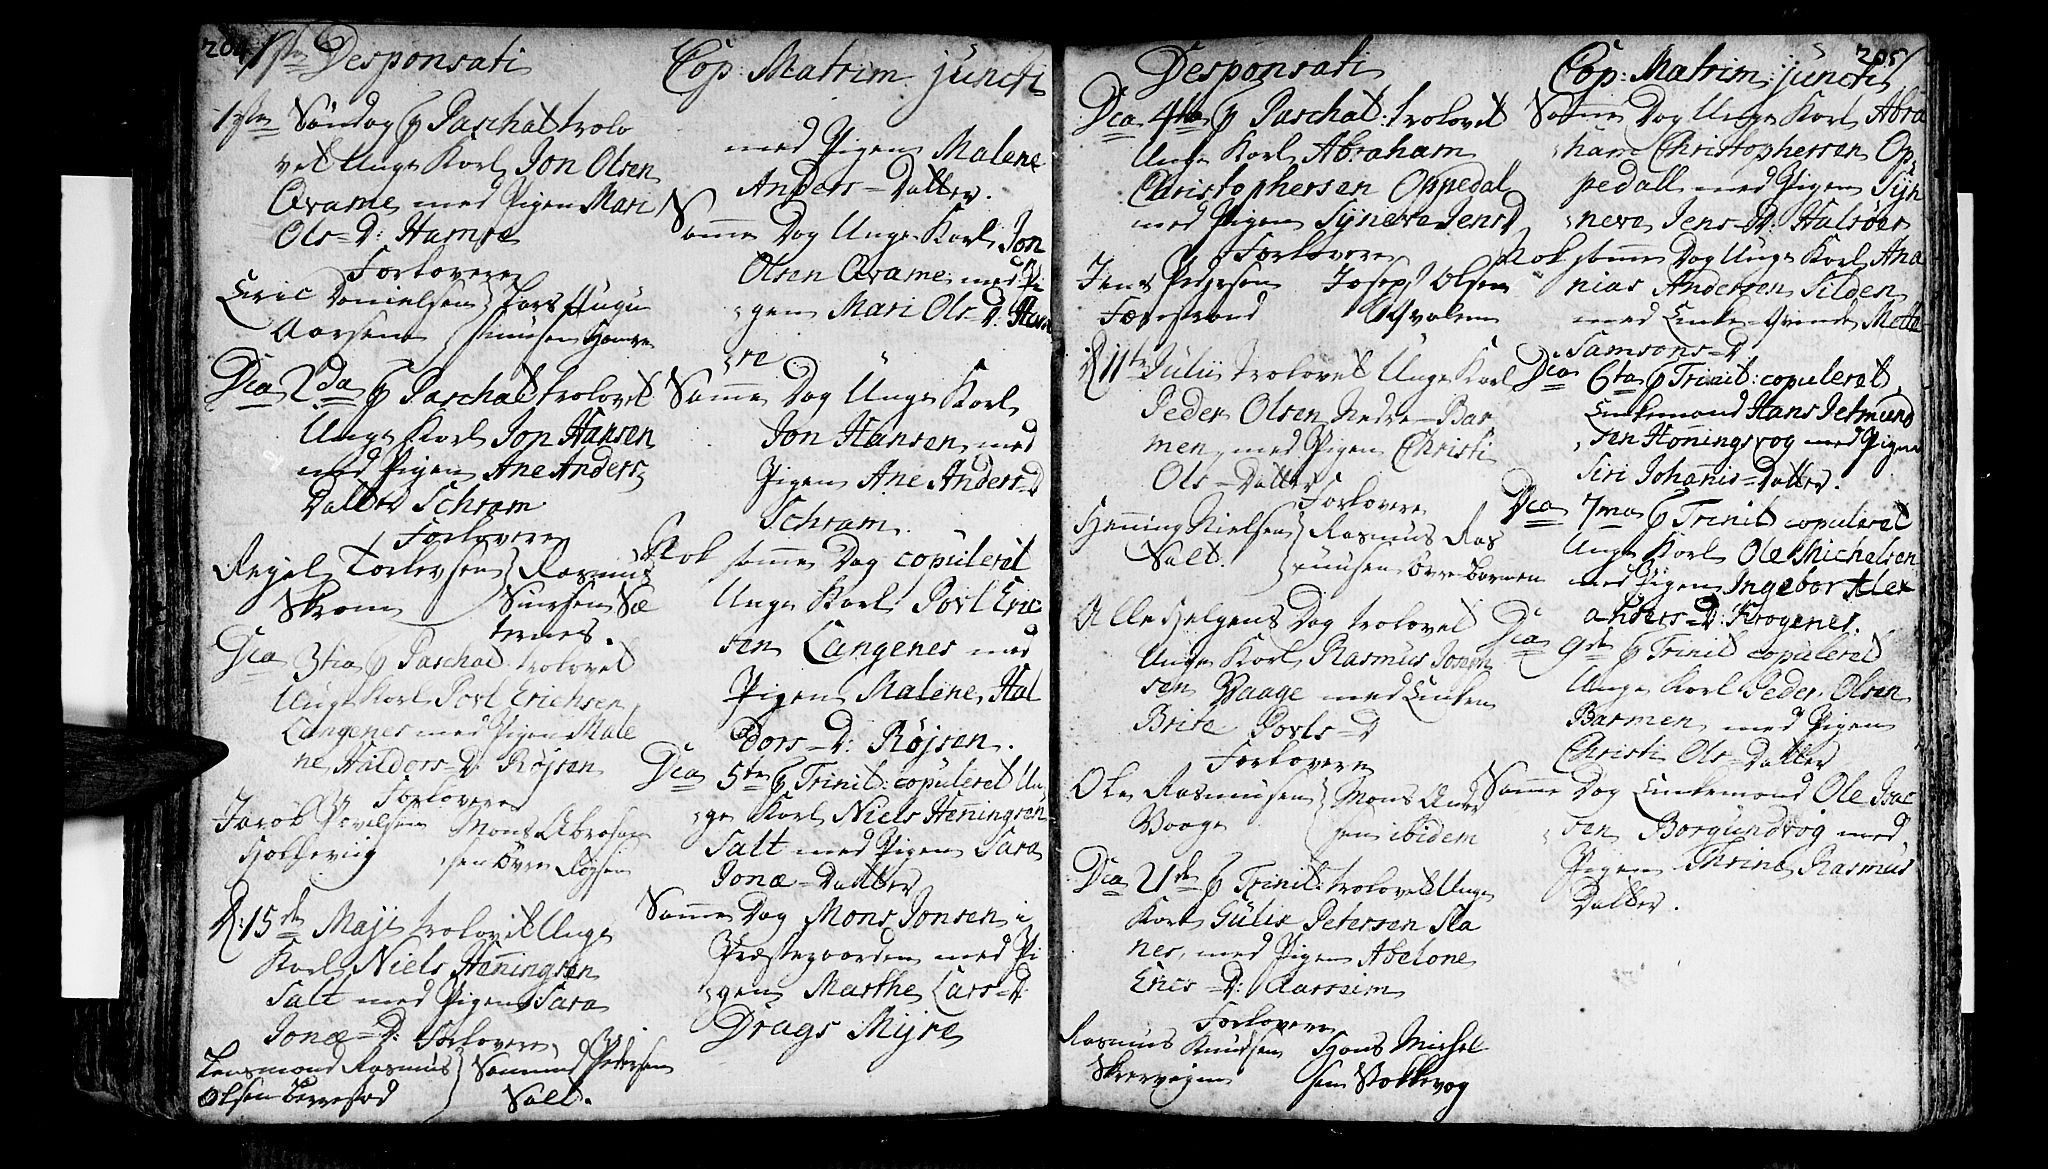 204
Desponsati
1ste Søndag p Paschat trolo
vet Unge Karl Jon Olsen
Qvame med Pigen Mari
Ols=D: Hamre
Forlovere
Eric Danielsen } Lars Hugu
Aarsem } Knudsen Hamre
Dca 2da p Paschat trolovet
Unge Karl Jon Hansen
med Pigen Ane Anders
Datter Schram
Forlovere
Torlevsen } Rasmus
Skram Sæ
ternes.
Dca 3tia p Paschat: trolovet
Unge Karl Povl Erichsen
Langenes med Pigen Male
ne Haldors=D: Røjsen
Forlovere
Jacob Povelsen Mons Abraham
sen Øvre Røjsen
D: 15de Maji trolovet Unge
Karl Niels Henningsen
Salt med Pigen Sara
Jonæ=D: Forlovere
Lensmand Rasmus } Samund Pedersen
Olsen Berrestad Salt.
Cop: Matrim juncti
med Pigen Malene
Anders=Datter.
Samme Dag Unge Karl Jon
Olsen Qvame med Pi
gen Mari Ols=D: Ham
re
Samme Dag Unge Karl
Jon Hansen med
Pigen Ane Anders=D
Schram.
Nok samme Dag copuleret
Unge Karl Povl Eric
sen Langenes med
Pigen Malene Hal
dors=D: Røjsen.
Dca 5te p Trinit: copuleret Un
ge Karl Niels Henningsen
Salt med Pigen Sara
Jonæ=Datter
Samme Dag Mons Jonsen i
Præstegaarden med Pi
gen Marthe Lars=D:
Drags Myre
205
Desponsati
Dca 4ta p Paschat: trolovet
Unge Karl Abraham
Christophersen Oppedal
med Pigen Synneve Jens D
Forlovere
Jens Pedersen Joseph Olsen
Færestrand Qvalem
D 11te Julii trolovet Unge Karl
Peder Olsen Nedre=Bar
men, med Pigen Christi
Ols=Datter
Forlovere
Henning Nielsen } Rasmus Ras
Salt. } muusen Øvre Barmen
Alle Helgens Dag trolovet
Unge Karl Rasmus Josep
sen Vaage med Enken
Brite Povls=D
Forlovere
Ole Rasmusen } Mons Ander
Vaage sen ibidem
Dca 21de p Trinit: trolovet Unge
Karl Gülix Petersen Sta
nes, med Pigen Abelone
Erics=D: Aarseim
Forlovere
Rasmus Knudsen Hans Michel
sen Stokkevog
Cop: Matrim: juncti
Samme Dag Unge Karl Abra
ham Christophersen Op
pedall med Pigen Syn
neve Jens=D: Halsøer
Nok samme Dag Unge Karl Ana
nias Andersen Silden
med Enke Qvinde Mette
Samsons=D
Dca 6ta p Trinit: copuleret
Enkemand Hans Jetmund
sen Honningsvog med Pigen
Siri Johannis=Datter.
Dca 7ma p Trinit copuleret
Unge Karl Ole Michelsen
med Pigen Ingebor Alex
anders=D: Krogenes.
Dca 9de p Trinit copuleret
Unge Karl Peder Olsen
Barmen med Pigen
Christi Ols=Datter
Samme Dag Enkemand Ole Isac
sen Borgundvog med
Pigen Thrine Rasmus
Datter.